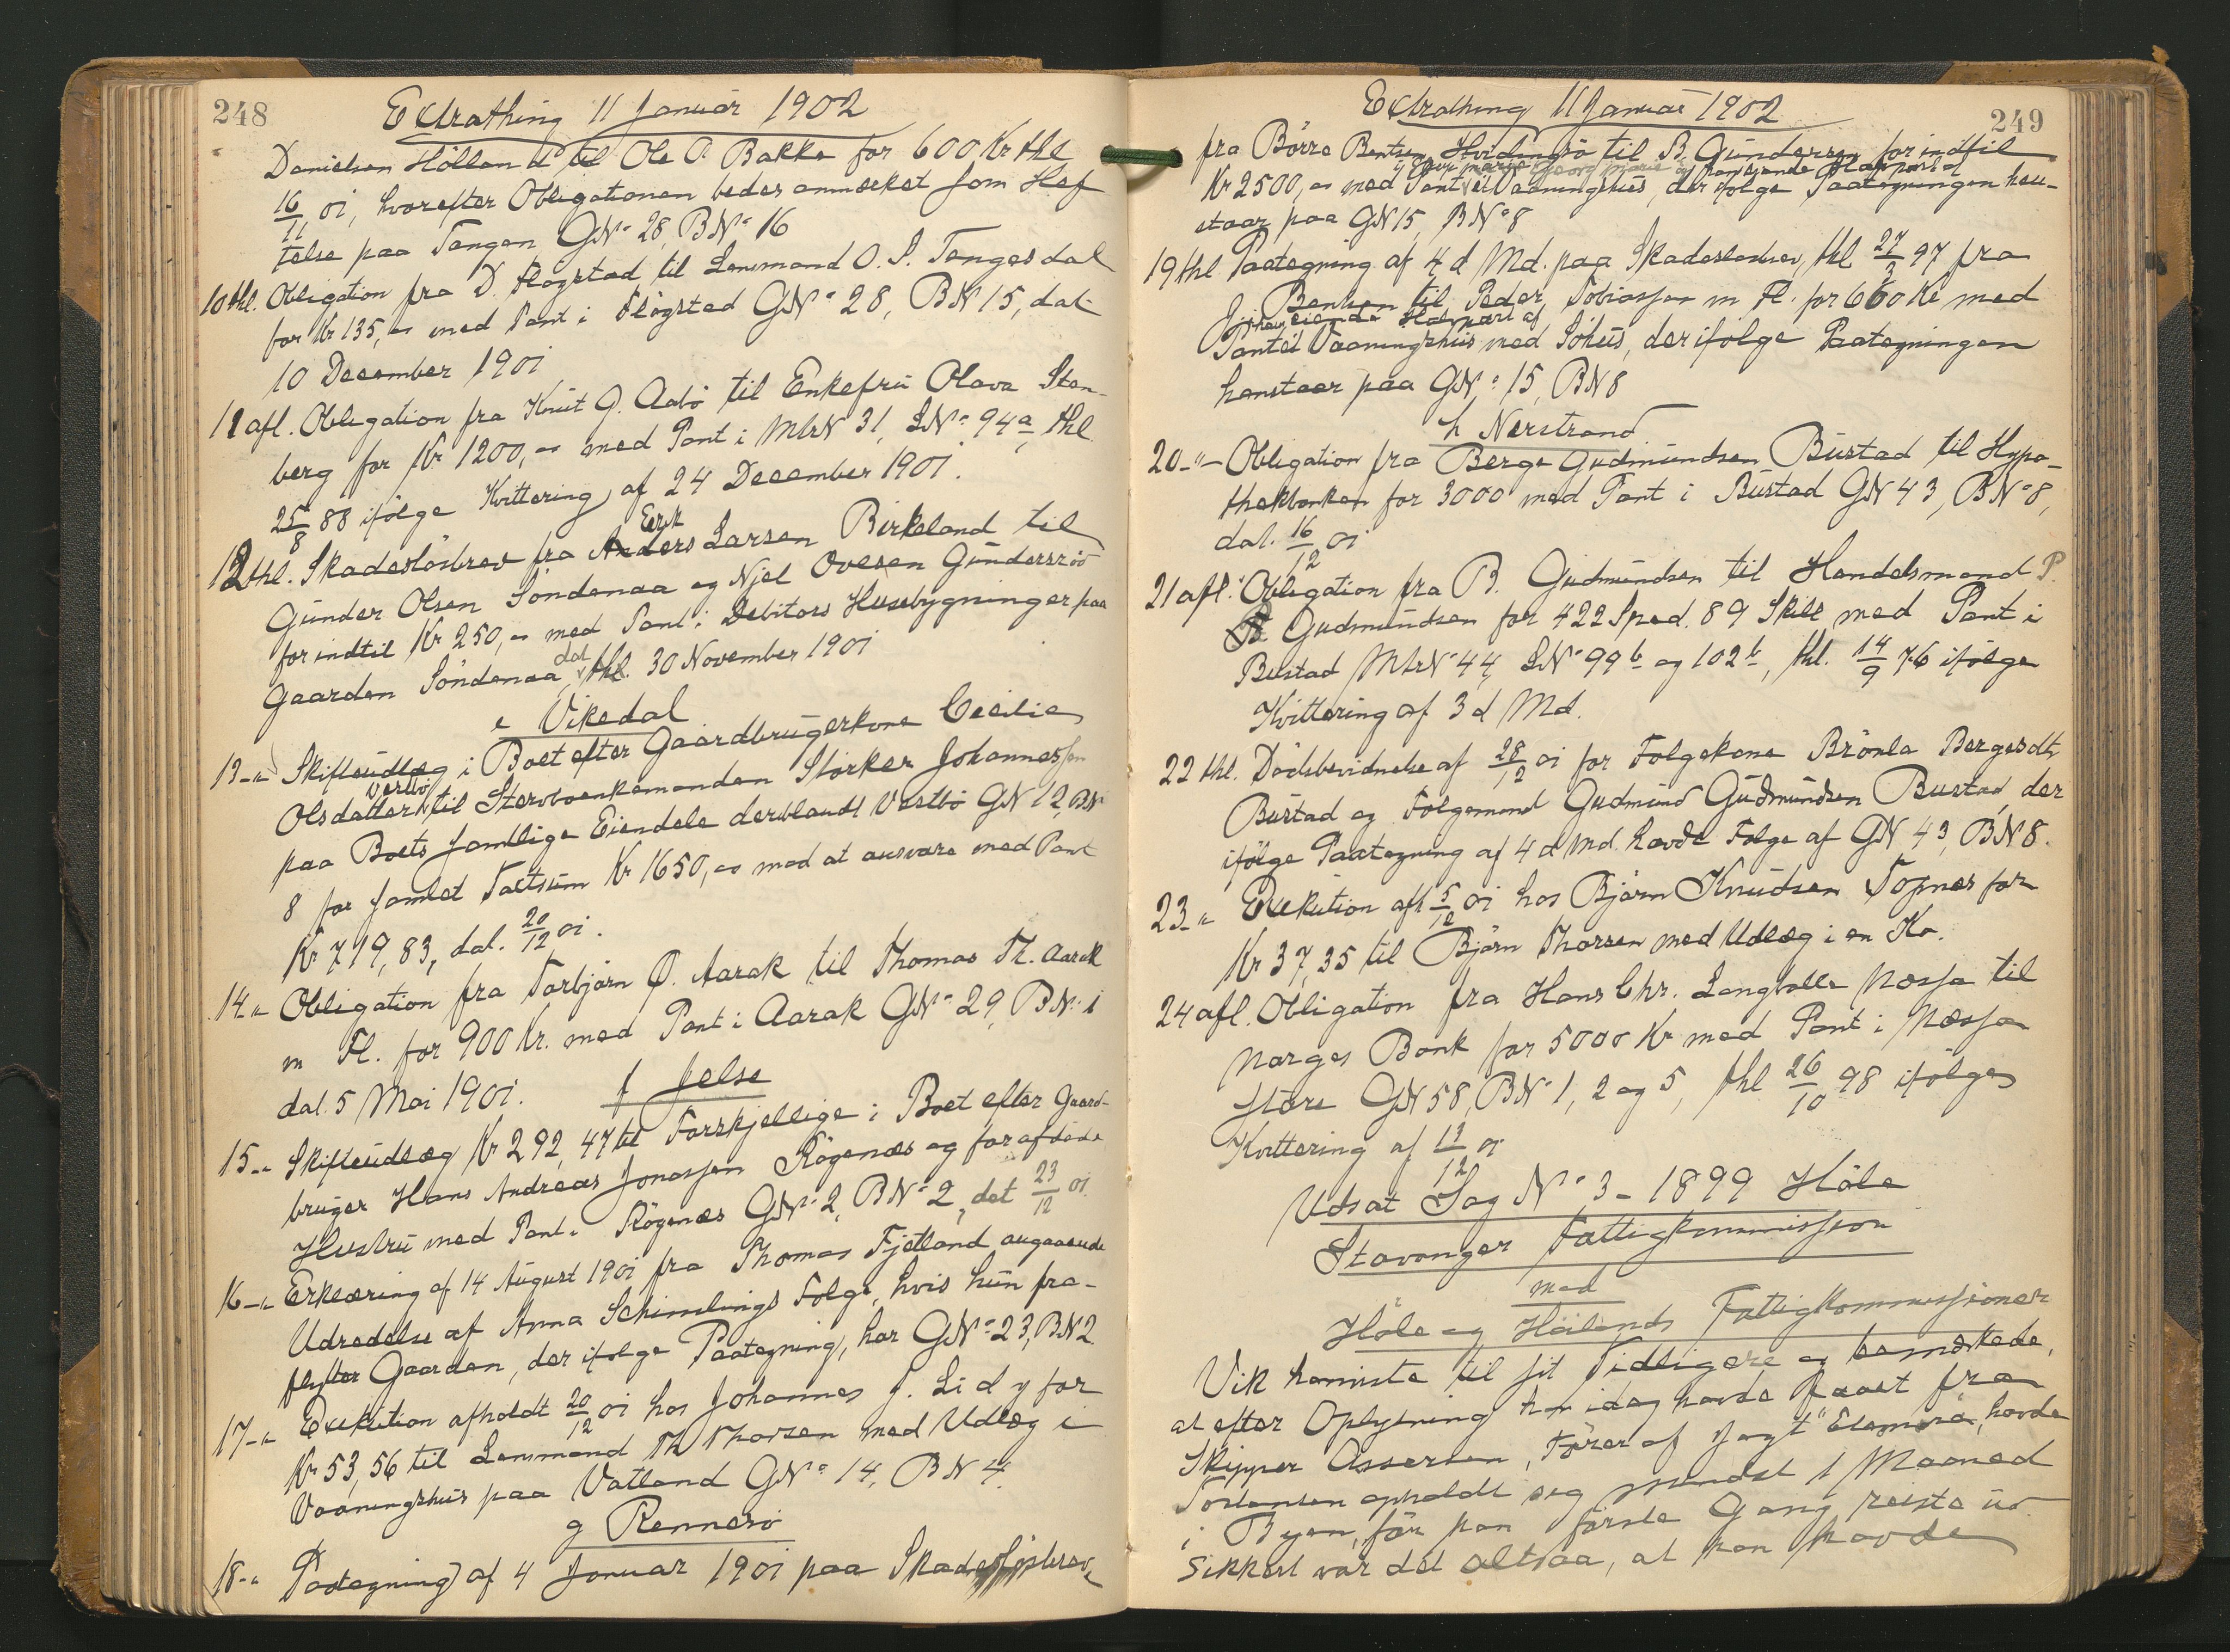 248
Extrathing 11 Januar 1902
Danielsen Hölland til Ole O. Bakke for 600 Kr thl
16/11 01, hvorefter Obligationen bedes anmærket som Hef
telse paa Tangen GNo 28, BNo 16
10 thl. Obligation fra D. Flögstad til Lensmand O. S. Tangesdal
for Kr 135,00 med Pant i Flögstad GNo 28, BN 15, dat
10 December 1901
11 afl. Obligation fra Knut G. Aabö til Enkefru Olava Sten-
berg for Kr 1200,00 med Pant i MtrN 31, LNo 94a, thl
25/8 88 ifölge Kvittering af 24 December 1901.
12 thl. Skadeslösbrev fra Anders Erik Larsen Birkeland til
Gunder Olsen Söndenaa og Njel Ovesen Gundersröd
for indtil Kr 250,00 med Pant i Debitors Husebygninger paa
Gaarden Söndenaa, dat thl. 30 November 1901
e Vikedal
13 -"- Skifteudlæg i Boet efter Gaardbrugerkone Cecilie
Olsdatter Vestbö til Stervboenkemanden Störker Johannessen
paa Boets samtlige Eiendele deriblandt Vestbö GN 12, BN
8 for samlet Taxtsum Kr 1650,00 mod at ansvare med Pant
Kr 719,83, dat. 20/12 01.
14 " Obligation fra Torbjörn Ö. Aarak til Thomas Th. Aarak
m Fl. for 900 Kr. med Pant i Aarak GNo 29, BNo 1
dat. 5 Mai 1901.
f Jelse
15 -"- Skifteudlæg Kr 292,47 til Forskjellige i Boet efter Gaard-
bruger Hans Andreas Jonassen Rögenæs og for afdöde
Hustru med Pant i Rögenæs GNo 2, BNo 2, dat 23/12 01.
16 -"- Erklæring af 14 August 1901 fra Thomas Fjetland angaaende
Udredelse af Anna Schimlings Folge, hvis hun fra-
flytter Gaarden, der ifolge Paategning, har GNo 23, BN 2
17 -"- Exekution afholdt 20/12 01 hos Johannes J. Lidy for
Kr 53,56 til Lensmand Th Thorsen med Udlæg i
Vaaningshus paa Vatland GNo 14, BN 4.
g Rennesö
18 -"- Paategning af 4 Januar 1901 paa Skadeslösbrev
249
Extrathing 11 Januar 1902
fra Börre Bentsen Hvidingsö til B. Gundersen for indtil
Kr 2500,00 med Pant i et Vaaningshus, der ifolge Paategningen hen-
staar paa GN 15, BNo 8
19 thl Paategning af 4 d Md. paa Skadeslösbrev, thl 27/3 97 fra
J. Bentsen til Peder Tobiassen m Fl. for 660 Kr med
eiende Halvpart af
Pant i et Vaaningshus med Söhus, der ifolge Paategningen
henstaar paa GNo 15, BN 8
h Nerstrand
20 -"- Obligation fra Berge Gudmundsen Bustad til Hypo-
thekbanken for 3000 med Pant i Bustad GN 43, BNo 8,
dat. 16/12 01
21 afl. Obligation fra B. Gudmundsen til Handelsmand P.
Gudmundsen for 422 Spd. 89 Skill med Pant i
Bustad MtrNo 44, LNo 99b og 102b, thl. 14/9 76 ifölge
Kvittering af 3 d Md.
22 thl. Dödsbevidnelse af 28/12 01 for Folgekone Brönla Bergesdtr
Bustad og Folgemand Gudmund Gudmundsen Bustad, der
ifölge Paategning af 4 d Md. havde Folge af GN 43, BN 8.
23 " Exekution afh 5/12 01 hos Björn Knudsen Topnes for
Kr 37,35 til Björn Thorsen med Udlæg i en Ko.
24 afl. Obligation fra Hans Chr. Langballe Næssa til
Norges Bank for 5000 Kr med Pant i Næssa
störe GN 58, BNo 1, 2 og 5, thl 26/10 98 ifölge
Kvittering af 13/12 01
Udsat Sag No 3 - 1899 Höle
Stavanger Fattigkommission
mod
Höle og Höilands Fattigkommissioner
Vik henviste til sit Tidligere og bemærkede,
at efter Oplysning han idag havde faaet fra
Skipper Assersen, Förer af Jagt "Elenora", havde
Torstensen opholdt sig mindst 1 Maaned
i Byen, för han förste Gang reiste ud.
Sikkert var det altsaa, at han havde